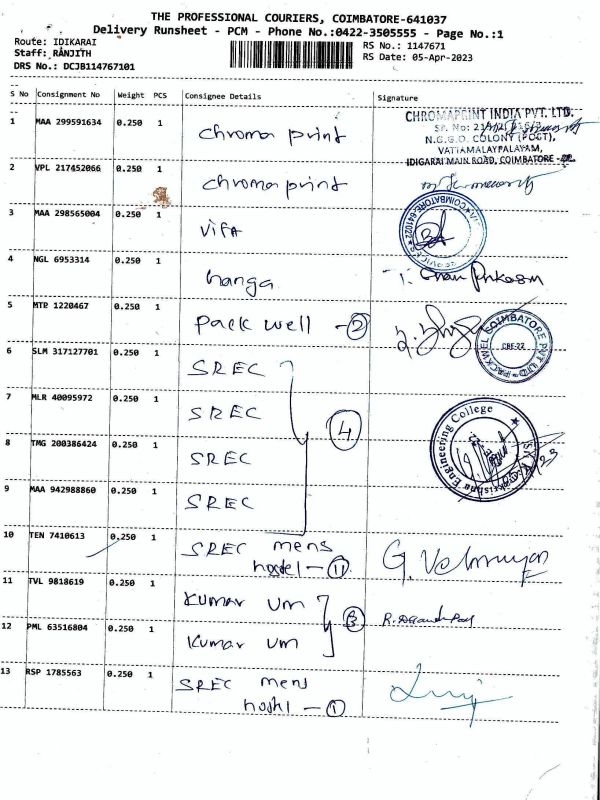 THE PROFESSIONAL COURIERS, COIMBATORE-641037
Delivery Runsheet - PCM - Phone No.:0422-3505555 - Page No.:1
Route: IDIKARAI
Staff: RANJITH
DRS No.: DCJB114767101
RS No.: 1147671
RS Date: 05-Apr-2023
S No Consignment No Weight PCS Consignee Details Signature
1 MAA 299591634 0.250 1 Chroma print
CHROMAPRINT INDIA PVT. LTD.
SF. No:
N.G.G.O. COLONY (POST),
VATTAMALAYPALAYAM,
IDIGARAI MAIN ROAD, COIMBATORE
2 VPL 217452066 0.250 1 Chroma print
3 MAA 298565004 0.250 1 VIFA
COIMBATORE-641022
4 NGL 6953314 0.250 1 hanga
5 MTP 1220467 0.250 1 Pack well - 2
PACKWEL COIMBATORE PVT LTD
CBE-22
6 SLM 317127701 0.250 1 SREC
7 MLR 40095972 0.250 1 SREC
4
Engineering College
8 TMG 200386424 0.250 1 SREC
9 MAA 942988860 0.250 1 SREC
10 TEN 7410613 0.250 1 SREC mens
hostel - 11
G. Velmurugan
11 TVL 9818619 0.250 1 Kumar um
3
12 PML 63516804 0.250 1 Kumar um
13 RSP 1785563 0.250 1 SREC mens
hostl - 1